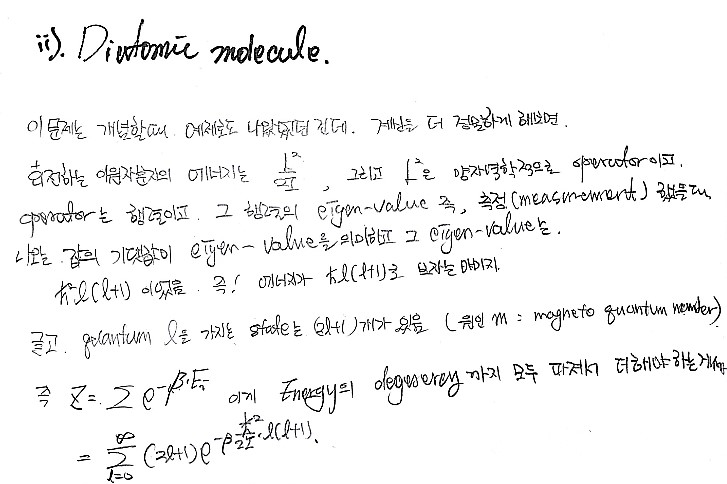 ii). Diatomic molecule.
이 문제는 개념할때 예제로도 나왔었던 건데. 계산을 더 정밀하게 해보면.
회전하는 이원자분자의 에너지는 L²/2I , 그리고 L²은 양자역학적으로 operator이고.
operator는 행렬이고. 그 행렬의 eigen-value 즉, 측정(measurement) 했을때
나오는 값의 기댓값이 eigen-value를 의미하고 그 eigen-value는.
ℏ²l(l+1) 이었음. 즉! 에너지가 ℏl(l+1)로 보자는 이미지.
글고. quantum l을 가지는 state는 (2l+1)개가 있음 (원인 m : magneto quantum number)
즉 Z = Σ e^{-β·E_i} 이게 Energy의 degeneracy까지 모두 따져서 더해야하는거
= Σ_{l=0}^{∞} (2l+1) e^{-β ℏ²/2I · l(l+1)}.